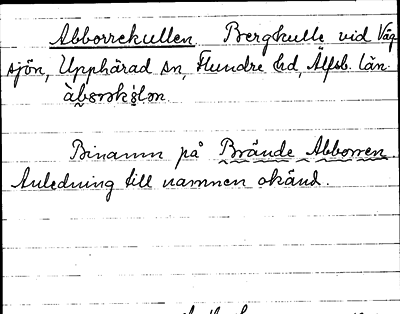 Abborrekullen. Bergkulle vid Väg-
sjön, Upphärad sn, Flundre hd, Älfsb. län.
Binamn på Brände Abborren.
Anledning till namnen okänd.